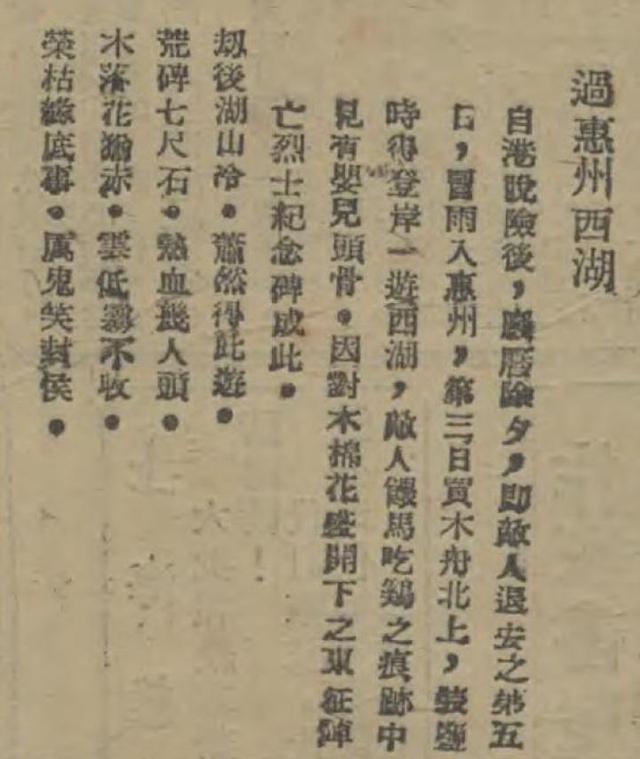 過惠州西湖
自港脫險後，舊曆除夕，即敵人退去之第五
日，冒雨入惠州，第三日買木舟北上，裝鹽
時得登岸一遊西湖，敵人餵馬吃鷄之痕跡中
見有嬰兒頭骨。因對木棉花盛開下之東征陣
亡烈士紀念碑成此。
劫後湖山冷。蕭然得此遊。
荒碑七尺石。熱血幾人頭。
木落花猶赤。雲低霧不收。
榮枯緣底事。厲鬼笑封侯。